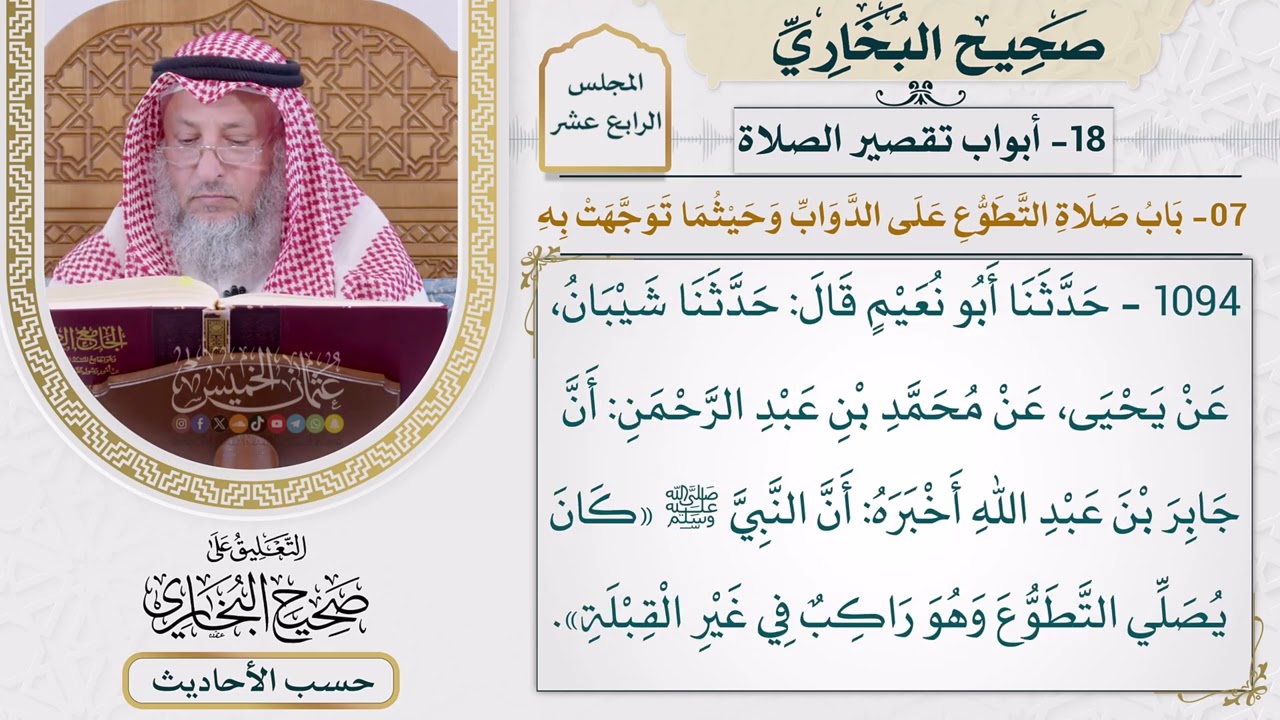 صَحِيح البُخَارِيِّ
المجلس
الرابع عشر
18- أبواب تقصير الصلاة
07- بَابُ صَلَاةِ التَّطَوُّعِ عَلَى الدَّوَابِّ وَحَيْثُمَا تَوَجَّهَتْ بِهِ
1094 - حَدَّثَنَا أَبُو نُعَيْمٍ قَالَ: حَدَّثَنَا شَيْبَانُ،
عَنْ يَحْيَى، عَنْ مُحَمَّدِ بْنِ عَبْدِ الرَّحْمَنِ: أَنَّ
جَابِرَ بْنَ عَبْدِ اللهِ أَخْبَرَهُ: أَنَّ النَّبِيَّ ﷺ «كَانَ
يُصَلِّي التَّطَوُّعَ وَهُوَ رَاكِبٌ فِي غَيْرِ الْقِبْلَةِ».
الجامع
عُثمان الخميس
التَّعْلِيقُ عَلَى
صَحِيحُ البُخَارِي
حسب الأحاديث